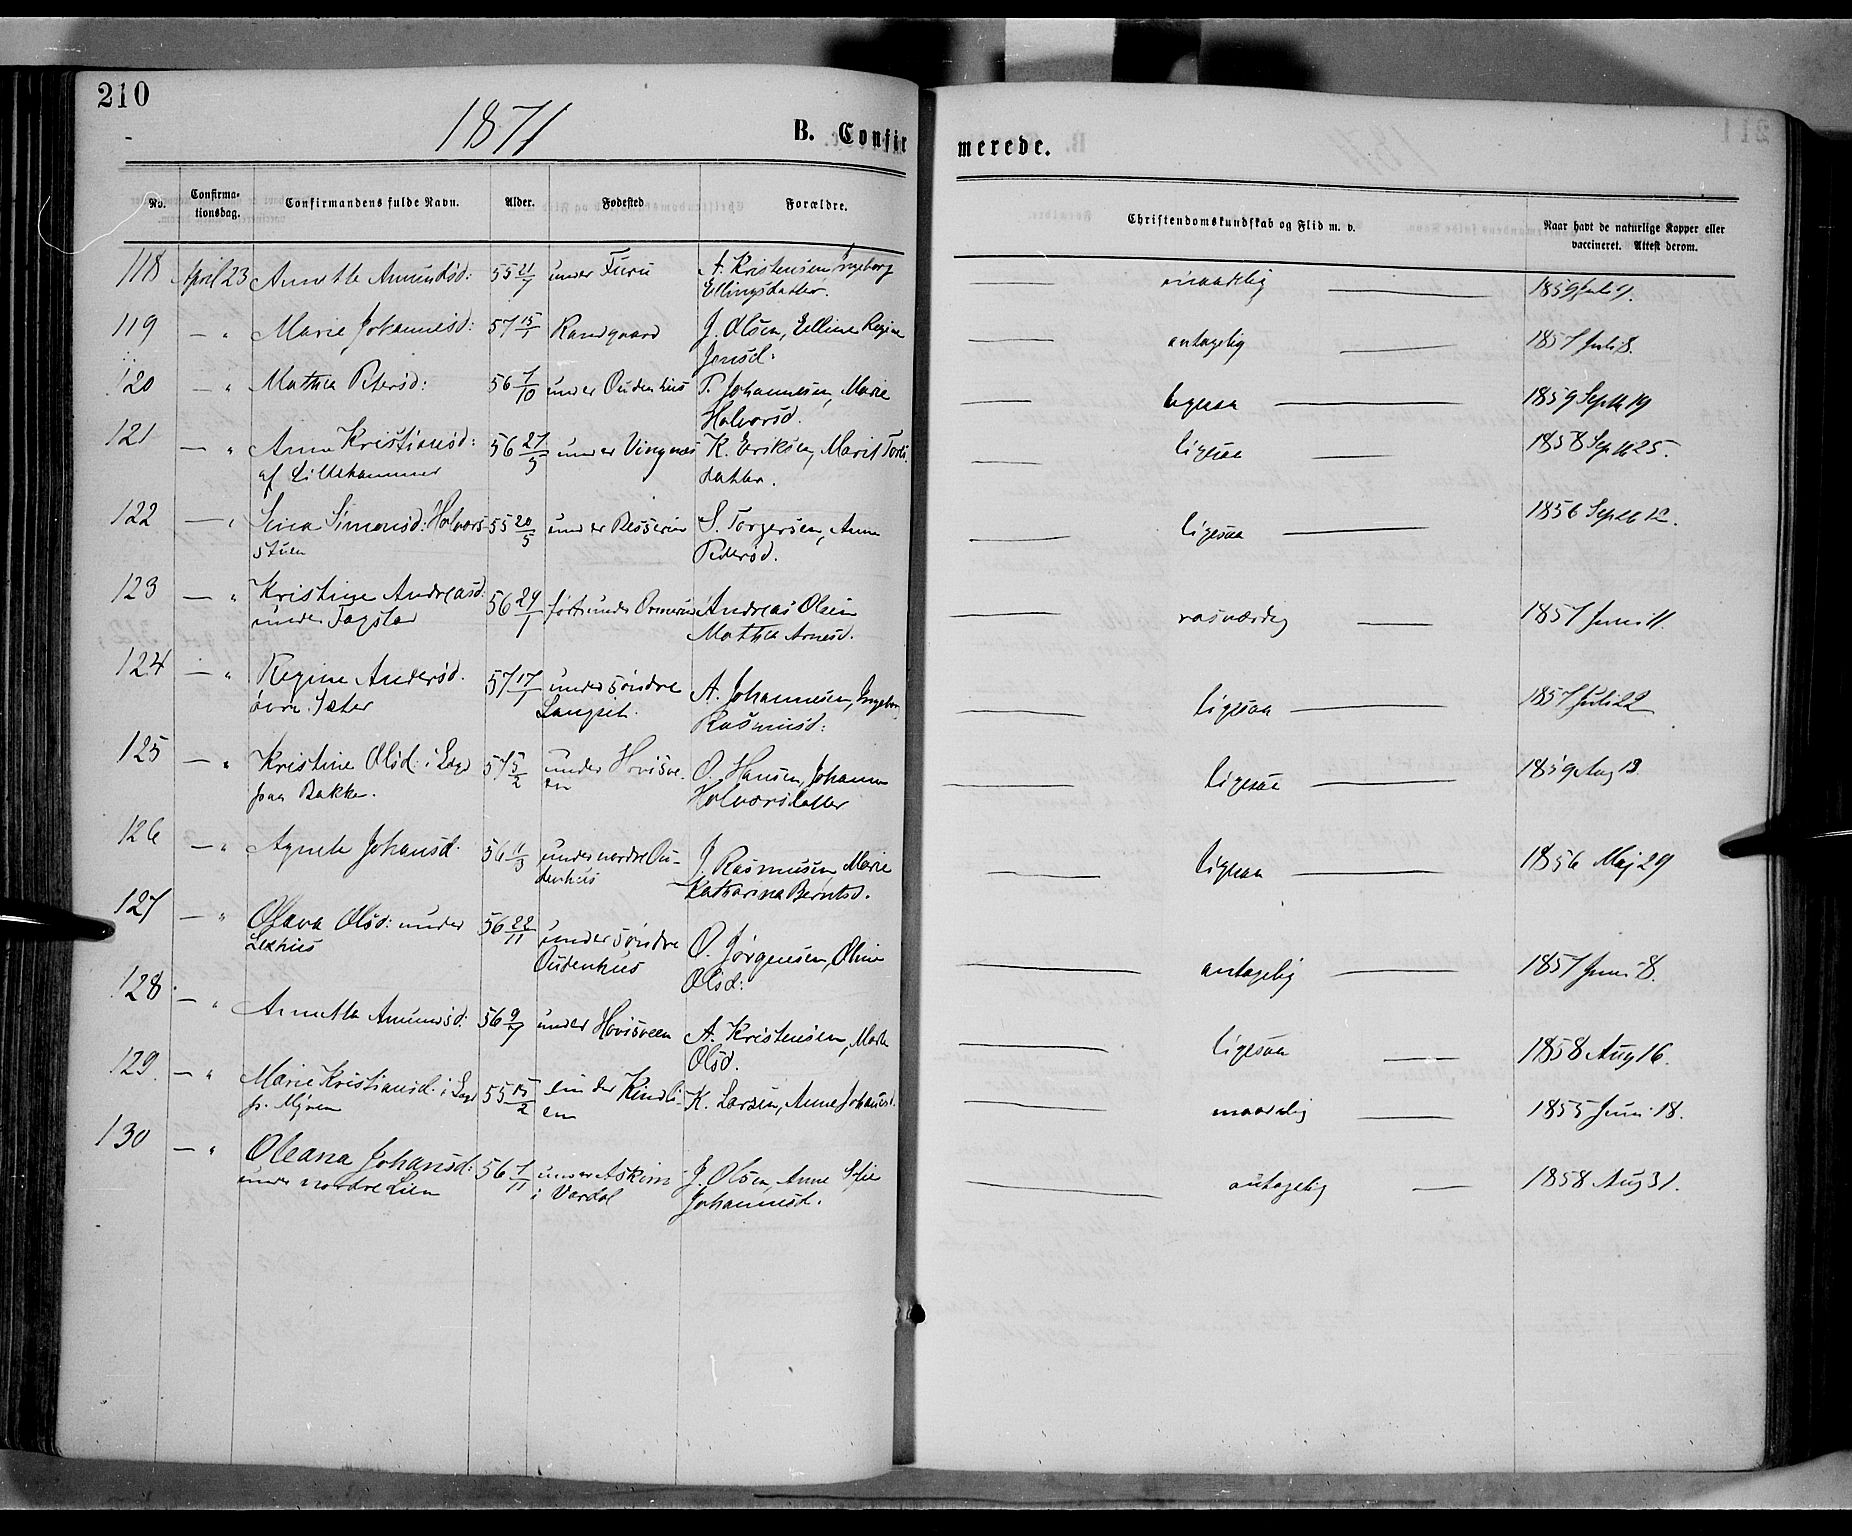 210
1871
B. Confirmerede.
No.
Confirmationsdag.
Confirmandens fulde Navn.
Alder.
Fødested
Forældre.
Christendomskundskab og Flid m. v.
Naar havt de naturlige Kopper eller vaccineret. Attest derom.
118 April 23 Anethe Amundsd: 55 21/7 under Furu A. Kristensen Ingeborg maadelig 1859 Juli 9.
Ellingsdatter.
119 — " Marie Johannesd: 57 15/1 Randgaard J. Olsen, Elline Regine antagelig 1857 Juli 8.
Jensd.
120 — " Mathea Pedersd: 56 7/10 under Oudenhus P. Johannesen, Marie ligesaa 1859 Septb 19
Halvorsd.
121 — " Anne Kristiansd: 56 27/5 under Vingnes K. Eriksen, Marit ligesaa 1858 Septb 25.
af Lillehammer datter.
122 — " Sina Simensd: Halvors 55 20/5 under S. Torgersen, Anne ligesaa 1856 Septb 12.
stuen Pedersd.
123 — " Kristine Andreasd: 56 24/1 født under Andreas Olsen 1857 Juni 11.
under Fagstad Mathea Arnesd.
124 — " Regine Andersd. 57 17/1 under søndre A. Johannesen, Ingeborg ligesaa 1857 Juli 22
øvre Sæter Langset. Rasmusd:
125 — " Kristine Olsd: i Logi 57 5/2 under Hovisve- O. Hansen, Johanne ligesaa 1859 Aug 13.
paa Bakken. en Halvorsdatter
126 — " Agnete Johansd. 56 1/3 under nordre Ou- J. Rasmusen, Marie ligesaa 1856 Maj 29
denhus Katharina Berntsd.
127 — " Olava Olsd: under 56 22/11 under søndre O. Jørgensen, Oline antagelig 1857 Juni 8.
Oudenhus Olsd:
128 — " Annethe Amundsd: 56 9/7 under Hovisveen A. Kristensen, Marte ligesaa 1858 Aug 16.
Olsd.
129. — " Marie Kristiansd. i Logi 55 15/2 under Kindli- K. Larsen, Anne Johansd. maadelig 1855 Juni 18.
p. Myren en
130 — " Oleana Johansd: 56 1/11 under Askim J. Olsen, Anne Sofie antagelig 1858 Aug 31.
under nordre Lien i Vardal Johannesd.